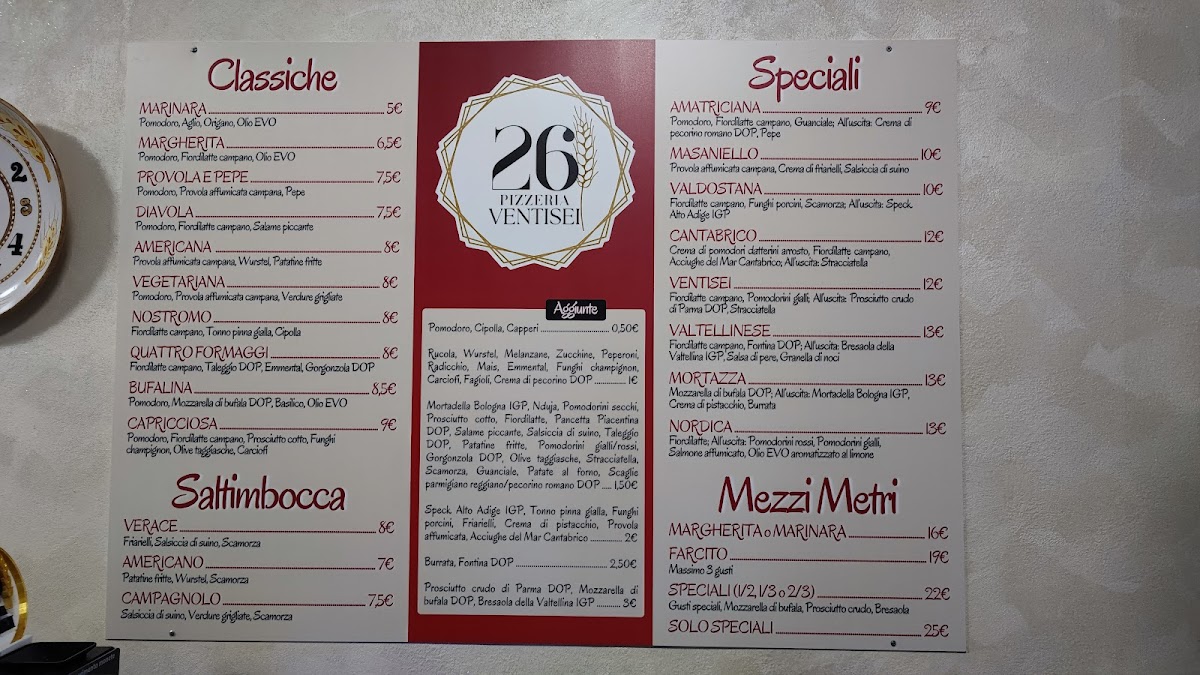 Classiche
MARINARA 5€
Pomodoro, Aglio, Origano, Olio EVO
MARGHERITA 6,5€
Pomodoro, Fiordilatte campano, Olio EVO
PROVOLA E PEPE 7,5€
Pomodoro, Provola affumicata campana, Pepe
DIAVOLA 7,5€
Pomodoro, Fiordilatte campano, Salame piccante
AMERICANA 8€
Provola affumicata campana, Wurstel, Patatine fritte
VEGETARIANA 8€
Pomodoro, Provola affumicata campana, Verdure grigliate
NOSTROMO 8€
Fiordilatte campano, Tonno pinna gialla, Cipolla
QUATTRO FORMAGGI 8€
Fiordilatte campano, Taleggio DOP, Emmental, Gorgonzola DOP
BUFALINA 8,5€
Pomodoro, Mozzarella di bufala DOP, Basilico, Olio EVO
CAPRICCIOSA 9€
Pomodoro, Fiordilatte campano, Prosciutto cotto, Funghi
champignon, Olive taggiasche, Carciofi
Saltimbocca
VERACE 8€
Friarielli, Salsiccia di suino, Scamorza
AMERICANO 7€
Patatine fritte, Wurstel, Scamorza
CAMPAGNOLO 7,5€
Salsiccia di suino, Verdure grigliate, Scamorza
26
PIZZERIA
VENTISEI
Aggiunte
Pomodoro, Cipolla, Capperi 0,50€
Rucola, Wurstel, Melanzane, Zucchine, Peperoni,
Radicchio, Mais, Emmental, Funghi champignon,
Carciofi, Fagioli, Crema di pecorino DOP 1€
Mortadella Bologna IGP, Nduja, Pomodorini secchi,
Prosciutto cotto, Fiordilatte, Pancetta Piacentina
DOP, Salame piccante, Salsiccia di suino, Taleggio
DOP, Patatine fritte, Pomodorini gialli/rossi,
Gorgonzola DOP, Olive taggiasche, Stracciatella,
Scamorza, Guanciale, Patate al forno, Scaglie
parmigiano reggiano/pecorino romano DOP 1,50€
Speck Alto Adige IGP, Tonno pinna gialla, Funghi
porcini, Friarielli, Crema di pistacchio, Provola
affumicata, Acciughe del Mar Cantabrico 2€
Burrata, Fontina DOP 2,50€
Prosciutto crudo di Parma DOP, Mozzarella di
bufala DOP, Bresaola della Valtellina IGP 3€
Speciali
AMATRICIANA 9€
Pomodoro, Fiordilatte campano, Guanciale; All'uscita: Crema di
pecorino romano DOP, Pepe
MASANIELLO 10€
Provola affumicata campana, Crema di friarielli, Salsiccia di suino
VALDOSTANA 10€
Fiordilatte campano, Funghi porcini, Scamorza; All'uscita: Speck
Alto Adige IGP
CANTABRICO 12€
Crema di pomodori datterini arrosto, Fiordilatte campano,
Acciughe del Mar Cantabrico; All'uscita: Stracciatella
VENTISEI 12€
Fiordilatte campano, Pomodorini gialli; All'uscita: Prosciutto crudo
di Parma DOP, Stracciatella
VALTELLINESE 13€
Fiordilatte campano, Fontina DOP; All'uscita: Bresaola della
Valtellina IGP, Salsa di pere, Granella di noci
MORTAZZA 13€
Mozzarella di bufala DOP; All'uscita: Mortadella Bologna IGP,
Crema di pistacchio, Burrata
NORDICA 13€
Fiordilatte; All'uscita: Pomodorini rossi, Pomodorini gialli,
Salmone affumicato, Olio EVO aromatizzato al limone
Mezzi Metri
MARGHERITA o MARINARA 16€
FARCITO 19€
Massimo 3 gusti
SPECIALI (1/2, 1/3 o 2/3) 22€
Gusti speciali, Mozzarella di bufala, Prosciutto crudo, Bresaola
SOLO SPECIALI 25€
2
3
4